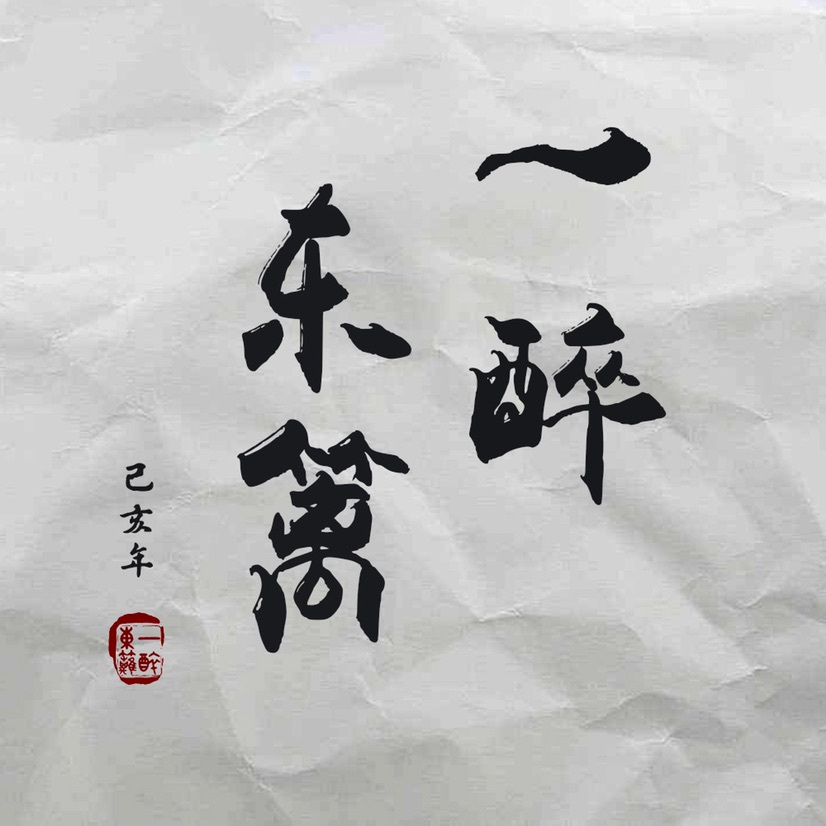 一醉
东篱
己亥年
一醉
東籬